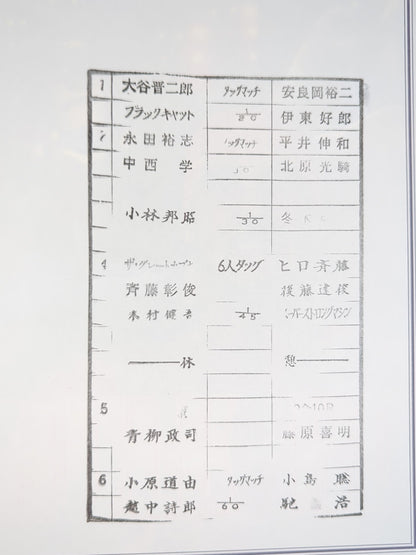 1 大谷晋二郎 タッグマッチ 安良岡裕二
ブラックキャット 1/30 伊東好郎
2 永田裕志 タッグマッチ 平井伸和
中西 学 30 北原光騎
小林邦昭 1/30 冬
4 ザ・グレートカブキ 6人タッグ ヒロ斉藤
斉藤彰俊 後藤達俊
木村健吾 1/45 スーパーストロングマシン
休 憩
5
青柳政司 藤原喜明
6 小原道由 タッグマッチ 小島 聡
越中詩郎 1/60 馳 浩